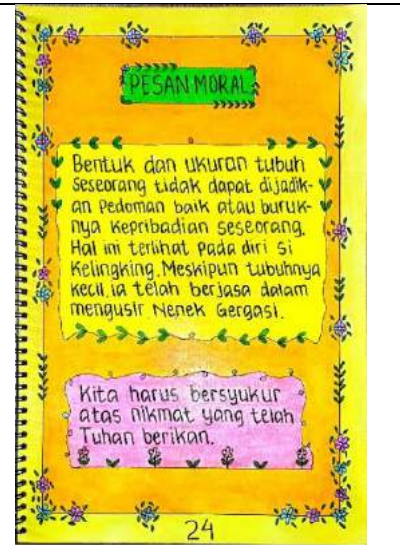 PESAN MORAL
Bentuk dan ukuran tubuh
Seseorang tidak dapat dijadik-
an Pedoman baik atau buruk-
nya Kepribadian seseorang.
Hal ini terlihat Pada diri Si
Kelingking. Meskipun tubuhnya
Kecil, ia telah berjasa dalam
mengusir Nenek Gergasi.
Kita harus bersyukur
atas nikmat yang telah
Tuhan berikan.
24